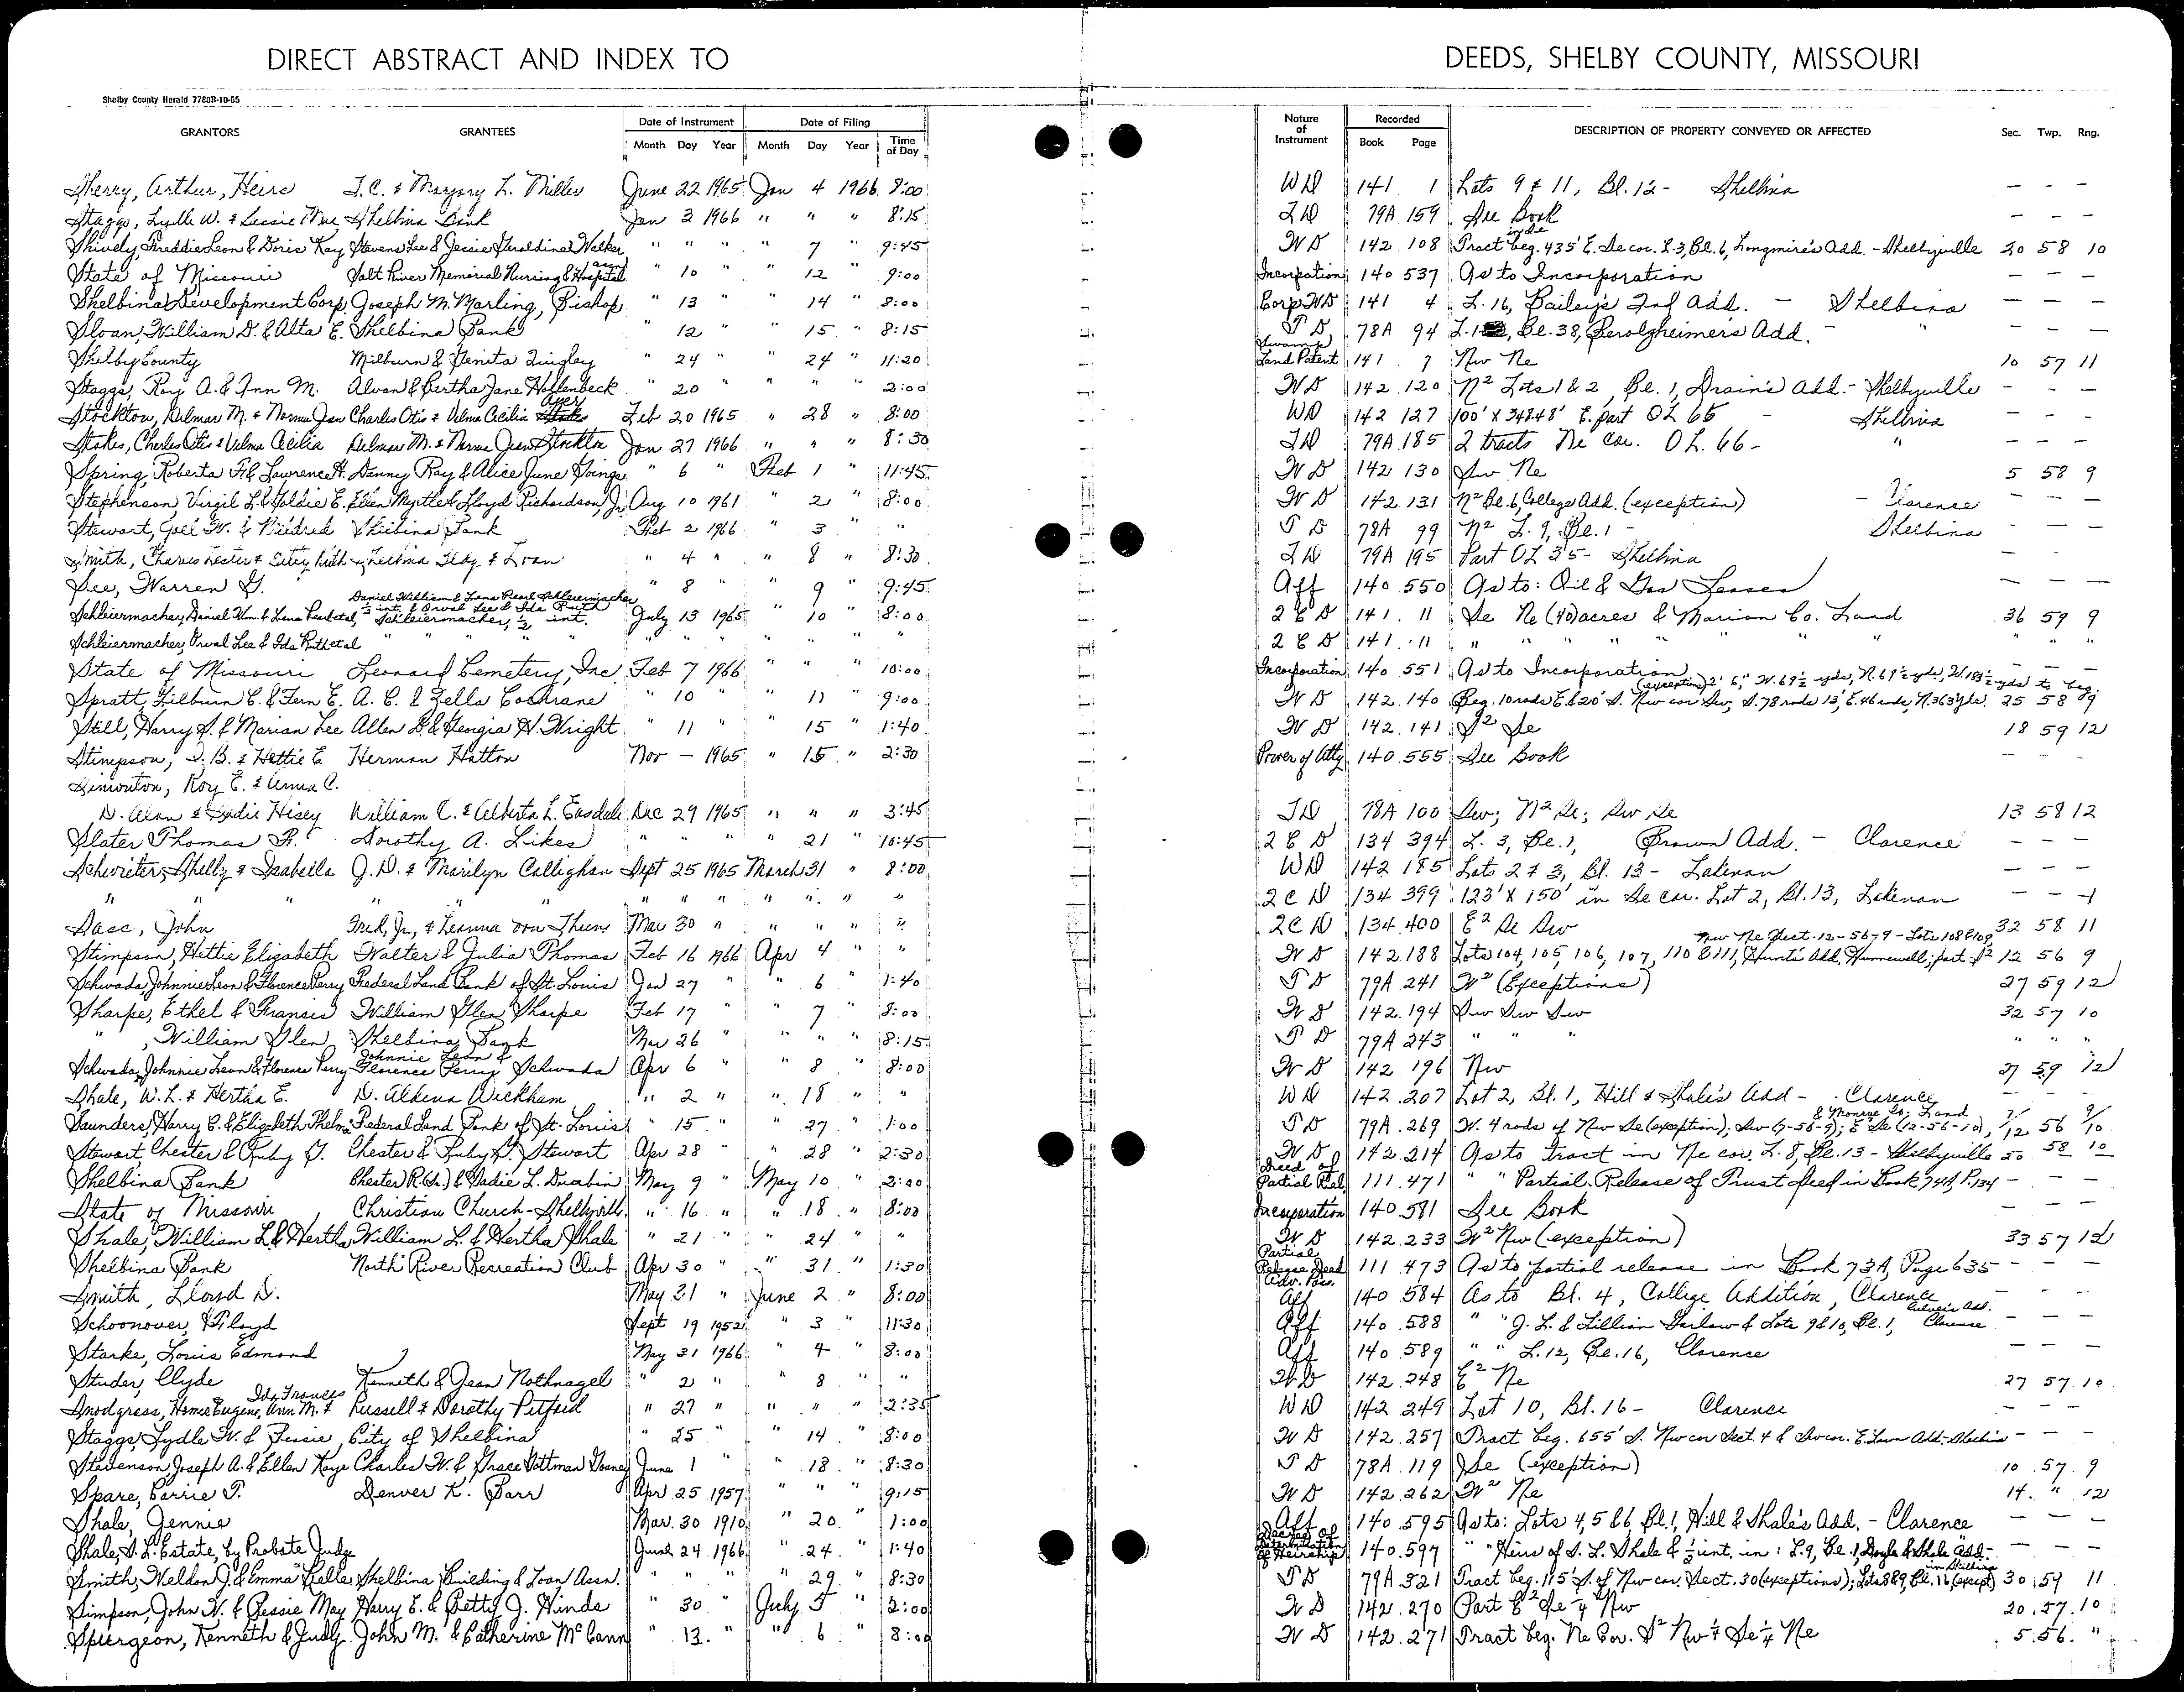 DIRECT ABSTRACT AND INDEX TO DEEDS, SHELBY COUNTY, MISSOURI
Shelby County Herald 7780B-10-65
GRANTORS GRANTEES Date of Instrument Date of Filing Nature of Instrument Recorded DESCRIPTION OF PROPERTY CONVEYED OR AFFECTED Sec. Twp. Rng.
Month Day Year Month Day Year Time of Day Book Page
Sherry, Arthur, Heirs J.C. & Marjory L. Miller June 22 1965 Jan 4 1966 8:00 WD 141 1 Lots 9 & 11, Bl. 12- Shelbina - - -
Staggs, Lydle W. & Shelbina Bank Jan 3 1966 " " " 8:15 TD 79A 159 See Book - - -
Shively, Freddie Leon & Doris Kay Stevens Lee & Jessie Geraldine Walker " " " " 7 " 9:45 WD 142 108 Tract beg. 435' E. Se cor. L.3, Bl. 6, Longmire's Add. - Shelbyville 20 58 10
State of Missouri Salt River Memorial Nursing & Hospital assn " 10 " " 12 " 9:00 Incorporation 140 537 As to Incorporation - - -
Shelbina Development Corp. Joseph M. Marling, Bishop " 13 " 14 " 8:00 Corp WD 141 4 L. 16, Bailey's 2nd Add. - Shelbina - - -
Sloan, William D. & Alta E. Shelbina Bank " 12 " " 15 " 8:15 TD 78A 94 Bl. 38, Gerolzheimer's Add. - " - - -
Shelby County Milburn & Tingley " 24 " " 24 " 11:20 Swamp Land Patent 141 7 Nw Ne 10 57 11
Staggs, Roy A. & Ann M. Alvan & Bertha Jane Hollenbeck " 20 " " " " 2:00 WD 142 120 N2 Lots 1 & 2, Bl. 1, Drain's Add. - Shelbyville - - -
Stockton, Delmar M. & Norma Jean Charles Otis & Velma Cecilia Feb 20 1965 " 28 " 8:00 WD 142 127 100' X 348.48' E. part OL 66 - Shelbina - - -
Stokes, Charles Otis & Velma Cecilia Delmar M. & Norma Jean Stockton Jan 27 1966 " " " 8:30 TD 79A 185 2 tracts Ne cor. OL. 66- " - - -
Spring, Roberta F. & Lawrence H. Danny Ray & Alice June Goings " 6 " Feb 1 " 11:45 WD 142 130 Sw Ne 5 58 9
Stephenson, Virgil L. & Goldie E. Ellen Myrtle & Lloyd Richardson, Jr. Aug 10 1961 " 2 " 8:00 WD 142 131 N2 Bl. 6, College Add. (exception) - Clarence - - -
Stewart, Joel W. & Mildred Shelbina Bank Feb 2 1966 " 3 " " TD 78A 99 N2 L. 9, Bl. 1 - Shelbina - - -
Smith, Charles Lester & Ruth Shelbina Bldg. & Loan " 4 " " 8 " 8:30 TD 79A 195 Part OL 35- Shelbina - - -
See, Warren G. " 8 " " 9 " 9:45 Aff 140 550 As to: Oil & Gas Leases - - -
Schleiermacher, Daniel Wm. & Lena Pearl etal, Daniel William & Lena Pearl Schleiermacher ½ int. & Orval Lee & Ida Ruth Schleiermacher, ½ int. July 13 1965 " 10 " 8:00 2 C D 141 11 Se Ne (40) acres & Marion Co. Land 36 59 9
Schleiermacher, Orval Lee & Ida Ruth etal " " " " " " " " " " 2 C D 141 11 " " " " " " " " "
State of Missouri Leonard Cemetery, Inc. Feb 7 1966 " " " 10:00 Incorporation 140 551 As to Incorporation - - -
(exception) 2' 6", W. 69½ yds, N. 69½ yds, W. yds to beg.
Spratt, Wilburn C. & Fern E. A. C. & Zella Cochrane " 10 " " 11 " 9:00 WD 142 140 Beg. 10 rods E. & 20' S. Nw cor Sw, S. 78 rods 12', E. 46 rods, N. 363 yds. 25 58 9
Still, Harry S. & Marian Lee Allen D. & Georgia H. Wright " 11 " 15 " 1:40 WD 142 141 S2 Se 18 59 12
Stimpson, D. B. & Hettie E. Herman Hatton Nov - 1965 " 15 " 2:30 Power of Atty. 140 555 See Book - - -
Simouton, Roy E. & Anna C.
D. Alan & Sadie Hisey William C. & Alberta L. Easdale Dec 29 1965 " " " 3:45 TD 78A 100 Sw; N2 Se; Sw Se 13 58 12
Slater Thomas F. Dorothy A. Likes " " " " 21 " 10:45 2 C D 134 394 L. 3, Bl. 1, Brown Add. - Clarence - - -
Schwieter, Shelby & Isabella J. D. & Marilyn Callighan Sept 25 1965 March 31 " 8:00 WD 142 185 Lots 2 & 3, Bl. 13 - Lakenan
" " " " " " " " " " " " 2 C D 134 399 123' X 150' in Se cor. Lot 2, Bl. 13, Lakenan - - -
Sasc, John Fred, Jr., & Leanna von Thun Mar 30 " " " " " 2C D 134 400 E2 Se Sw 32 58 11
Nw Ne Sect. 12-56-9 - Lots 108 & 109
Stimpson, Hettie Elizabeth Walter & Julia Thomas Feb 16 1966 Apr 4 " " WD 142 188 Lots 104, 105, 106, 107, 110 & 111, Hunt's Add. Hunnewell; part S2 12 56 9
Schwada, Johnnie Leon & Florence Perry Federal Land Bank of St. Louis Jan 27 " " 6 " 1:40 TD 79A 241 W2 (Exceptions) 27 59 12
Sharpe, Ethel & Francis William Glen Sharpe Feb 17 " 7 " 8:00 WD 142 194 Sw Sw Sw 32 57 10
" , William Glen Shelbina Bank Mar 26 " " " " 8:15 TD 79A 243 " " " " " "
Schwada, Johnnie Leon & Florence Perry Johnnie Leon & Florence Perry Schwada Apr 6 " " 8 " 8:00 WD 142 196 Nw 27 59 12
Shale, W. L. & Hertha E. D. Aldena Wickham " 2 " " 18 " " WD 142 207 Lot 2, Bl. 1, Hill & Shale's Add - Clarence - - -
& Monroe Co. Land 7/ 9/
Saunders, Harry C. & Elizabeth Thelma Federal Land Bank of St. Louis " 15 " " 27 " 1:00 TD 79A 269 W. 4 rods of Nw Se (exception); Sw (7-56-9); E2 Se (12-56-10), 12 56 10
Stewart Chester & Ruby G. Chester & Ruby G. Stewart Apr 28 " " 28 " 2:30 WD 142 214 As to tract in Ne cor. L. 8, Bl. 13 - Shelbyville 58 10
Shelbina Bank Chester R. (Sr.) & Sadie L. Durbin May 9 " May 10 " 2:00 Deed of Partial Rel. 111 471 " " Partial Release of Trust Deed in Book 74A, P. 134 - - -
State of Missouri Christian Church - Shelbyville " 16 " " 18 " 8:00 Incorporation 140 581 See Book - - -
Shale, William L. & Hertha William L. & Hertha Shale " 21 " " 24 " " WD 142 233 W2 Nw (exception) 33 57 12
Shelbina Bank North River Recreation Club Apr 30 " " 31 " 1:30 Partial Release Deed 111 473 As to partial release in Book 73A, Page 635 - - -
Smith, Lloyd D. May 31 " June 2 " 8:00 Adv. Poss. Aff 140 584 As to Bl. 4, College Addition, Clarence - - -
Schoonover, Floyd Sept 19 1952 " 3 " 11:30 Aff 140 588 " " J. L. & Lillian & Lots 9 & 10, Bl. 1, Add. Clarence - - -
Starke, Louis Edmond May 31 1966 " 4 " 8:00 Aff 140 589 " " L. 12, Bl. 16, Clarence - - -
Studer, Clyde Kenneth & Jean Nothnagel " 2 " " 8 " " WD 142 248 E2 Ne 27 57 10
Snodgrass, Homer Eugene, Ann M. & Ida Frances Russell & Dorothy Pitford " 27 " " " " 2:35 WD 142 249 Lot 10, Bl. 16 - Clarence - - -
Staggs, Lydle W. & Jessie City of Shelbina " 25 " " 14 " 8:00 WD 142 257 Tract beg. 655' S. Nw cor Sect. 4 & Sw cor. E. Lawn Add.-Shelbina - - -
Stevenson, Joseph A. & Ellen Kaye Charles W. & Grace Gosney June 1 " " 18 " 8:30 TD 78A 119 Se (exception) 10 57 9
Spare, Carrie T. Denver K. Barr Apr 25 1957 " " " 9:15 WD 142 262 W2 Ne 14 " 12
Shale, Jennie Mar. 30 1910 " 20 " 1:00 Aff 140 595 As to: Lots 4, 5 & 6, Bl. 1, Hill & Shale's Add. - Clarence - - -
Shale, S. L. Estate, by Probate Judge June 24 1966 " 24 " 1:40 Decree of Determination of Heirship 140 597 " " Heirs of S. L. Shale & int. in: L. 9, Bl. 1, Doyle & Shale Add.-
Smith, Weldon J. & Emma Belle Shelbina Building & Loan Assn. " " " " 29 " 8:30 TD 79A 321 Tract beg. 115' S. of Nw cor. Sect. 30 (exceptions); Lots 8 & 9, Bl. 16 (except) 30 59 11
Simpson, John W. & Bessie May Harry E. & Betty J. Hinds " 30 " July 5 " 2:00 WD 142 270 Part E2 Se ¼ Nw 20 57 10
Spurgeon, Kenneth & Judy John M. & Catherine McCann " 13 " " 6 " 8:00 WD 142 271 Tract beg. Ne Cor. S2 Nw ¼ Se ¼ Ne 5 56 "